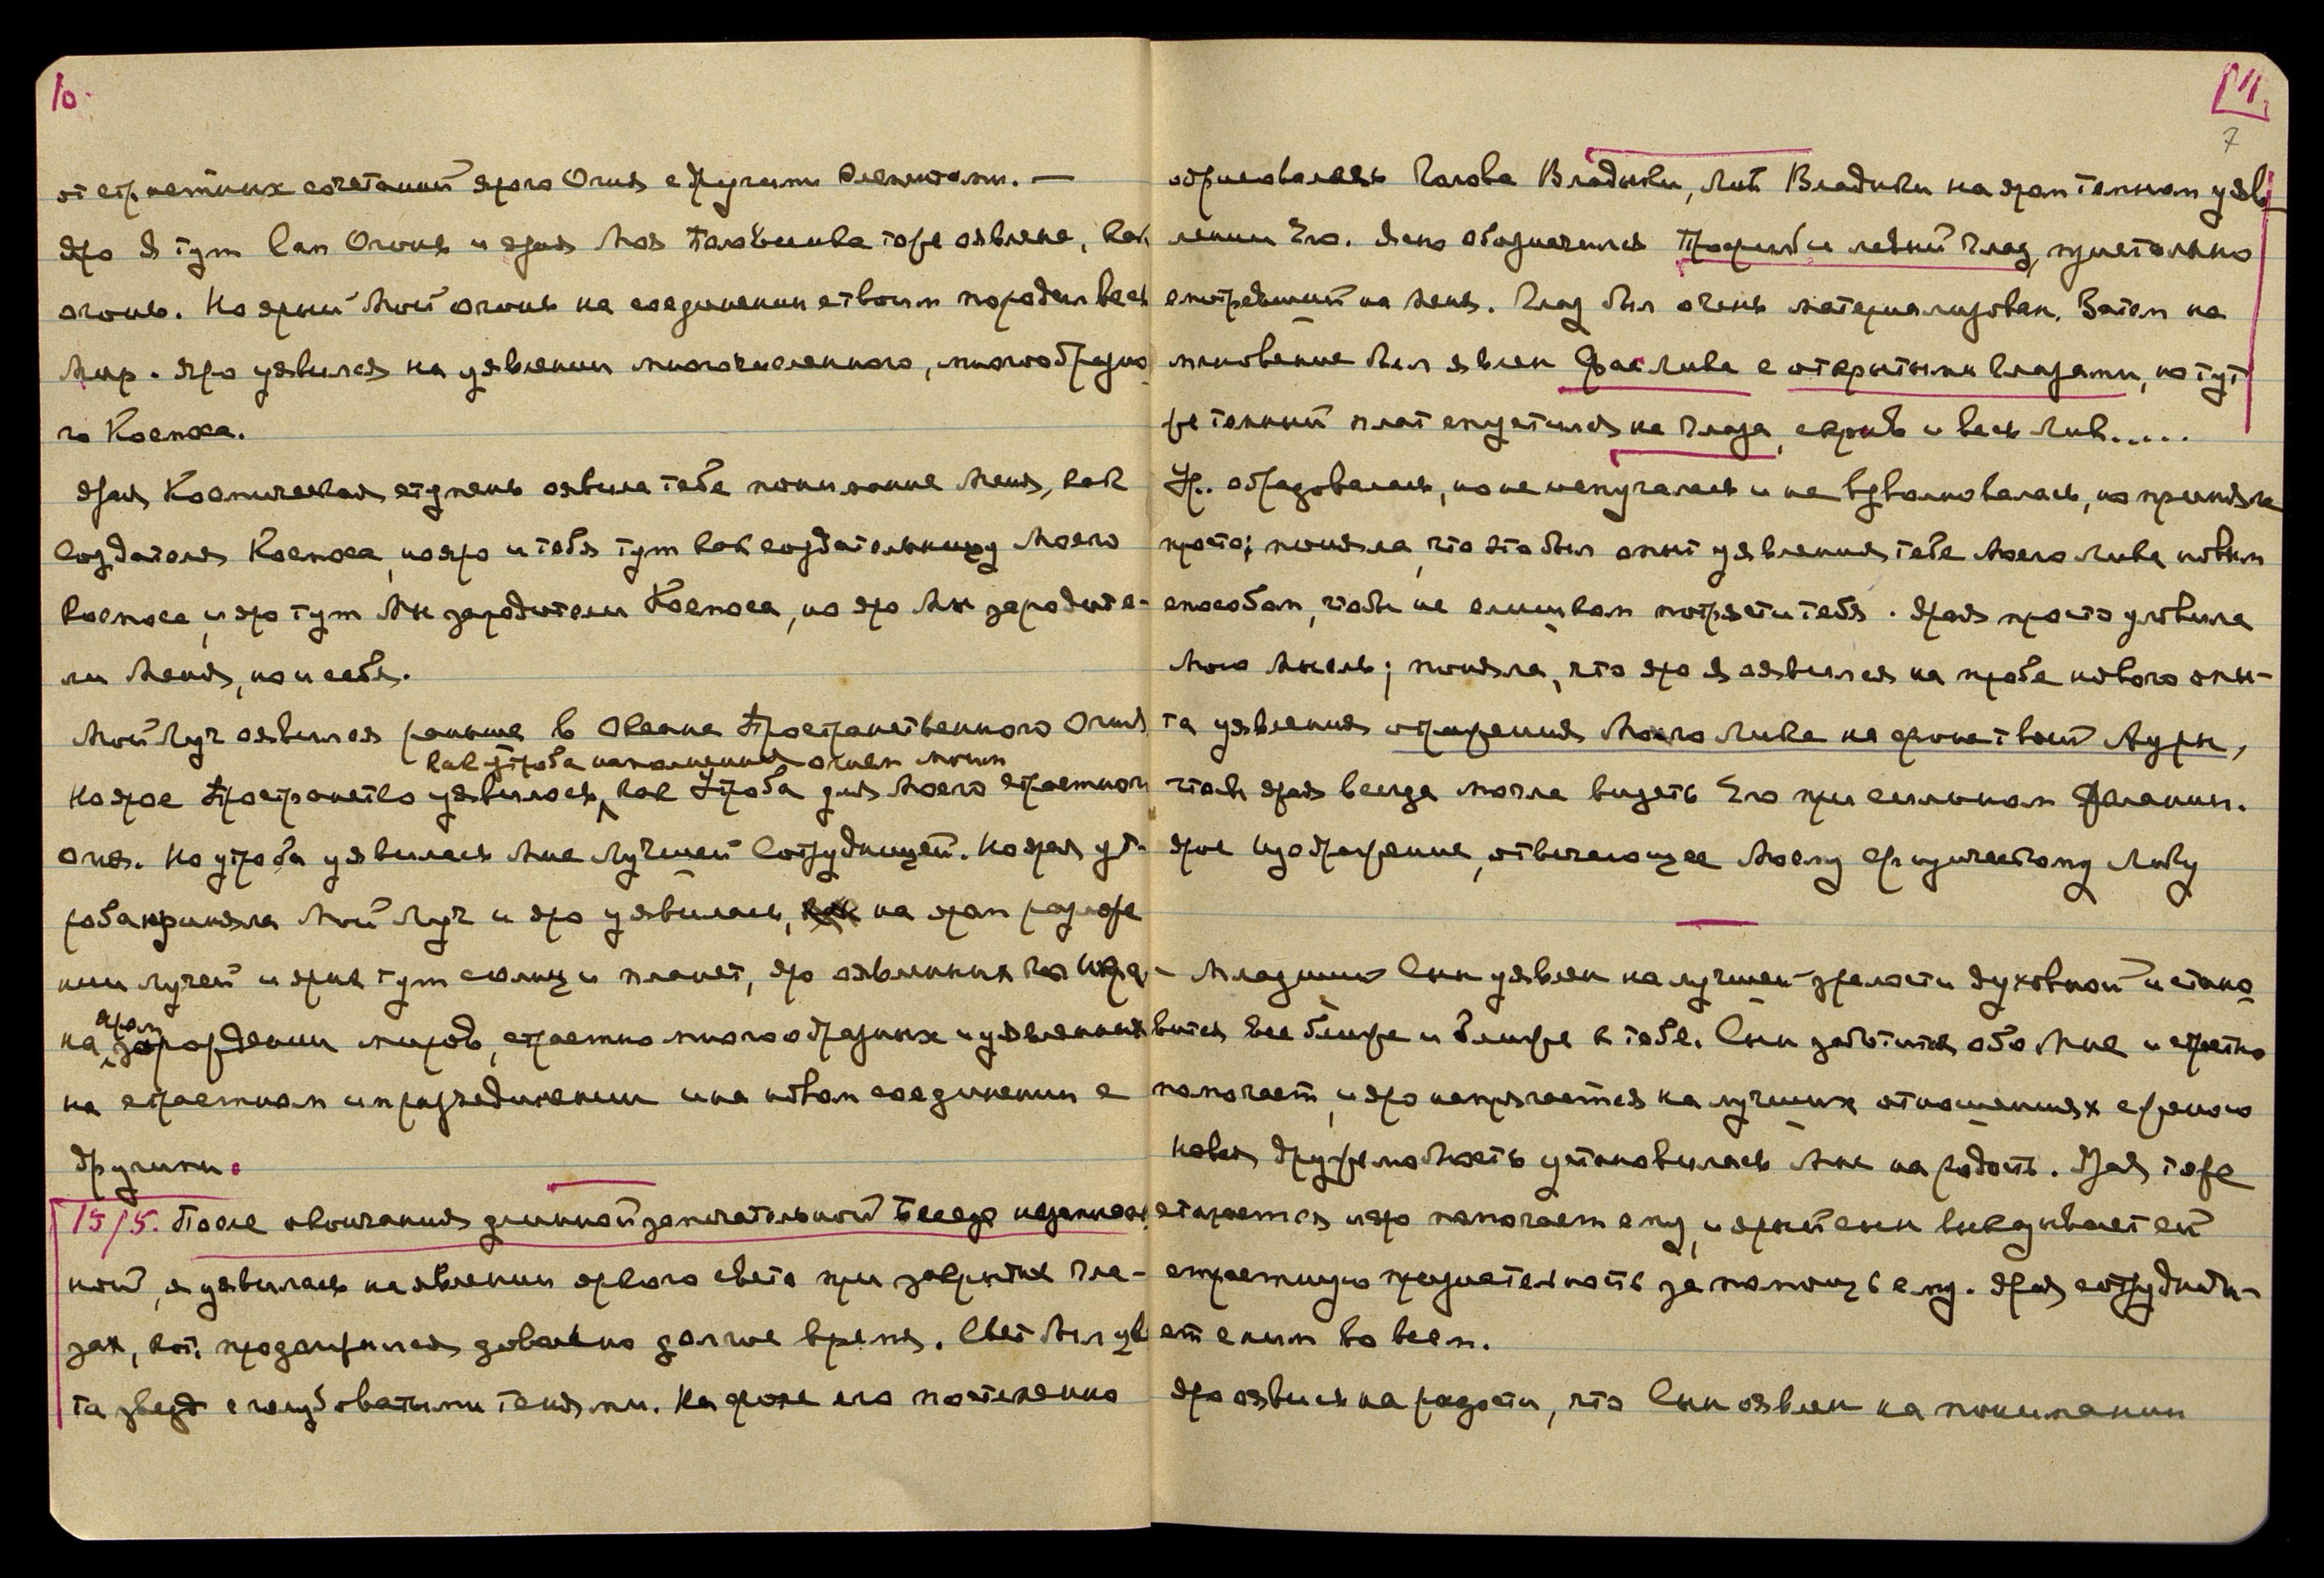 10.
от страстных сочетаний ярого Огня с другими Элементами. —
Яро Я тут Сам Огонь и ярая Моя Половинка тоже оявлена, как
огонь. Но ярый Мой огонь на соединении с твоим породил весь
Мир. Яро уявился на уявлении многочисленного, многообразно
го Космоса.
Ярая Космическая ступень оявила тебе понимание Меня, как
Создателя Космоса, но яро и тебя тут как создательницу Моего
Космоса, и яро тут Мы зародители Космоса, но яро Мы зародите-
ли Меня, но и себя.
Мой Луч оявился раньше в Океане Пространственного Огня
как Утроба наполненная огнем моим
но ярое Пространство уявилось, как Утроба для Моего страстного
огня. Но утроба уявилась Мне Лучшей Сотрудницей. Но ярая ут-
роба приняла Мой Луч и яро уявилась, на яром разложе
нии лучей и ярых тут солнц и планет, яро оявленных
яром
на зарождении миров, страстно многообразных и уявленных
на страстном и при разъединении и на новом соединении с
другими.
15/5. После окончания длинной замечательной Беседы
ной, я уявилась на явлении яркого света при закрытых гла-
зах, кот. продолжился довольно долгое время. Свет был цве
та звезд с голубоватыми тенями. На фоне его постепенно
11.
7
обрисовалась Голова Владыки, Лик Владыки на яром темном уяв
лении Его. Ясно обозначился Профиль и левый глаз, пристально
смотревший на меня. Глаз был очень материализован. Затем на
мгновение был явлен Фас Лика с открытыми глазами, но тут
же темный плат спустился на глаза, скрыв и весь Лик.....
Ур. обрадовалась, но не испугалась и не взволновалась, но приняла
просто; поняла, что это был опыт уявления тебе Моего Лика новым
способом, чтобы не слишком потрясти тебя. Ярая просто уловила
Мою Мысль; поняла, что яро Я оявился на пробе нового опы-
та уявления отражения Моего Лика на фоне твоей Ауры,
чтобы ярая всегда могла видеть Его при сильном желании.
Ярое Изображение, отвечающее Моему физическому Лику
—
Младший Сын уявлен на лучшей зрелости духовной и стано
вится все ближе и ближе к тебе. Сын заботится обо Мне и страстно
помогает, и яро напрягается на лучших отношениях с женою
Новая дружелюбность установилась Мне на радость. Ярая тоже
старается и яро помогает ему, и ярый сын выказывает ей
страстную признательность за помощь ему. Ярая сотруднича-
ет с ним во всем.
Яро оявись на радости, что Сын оявлен на понимании